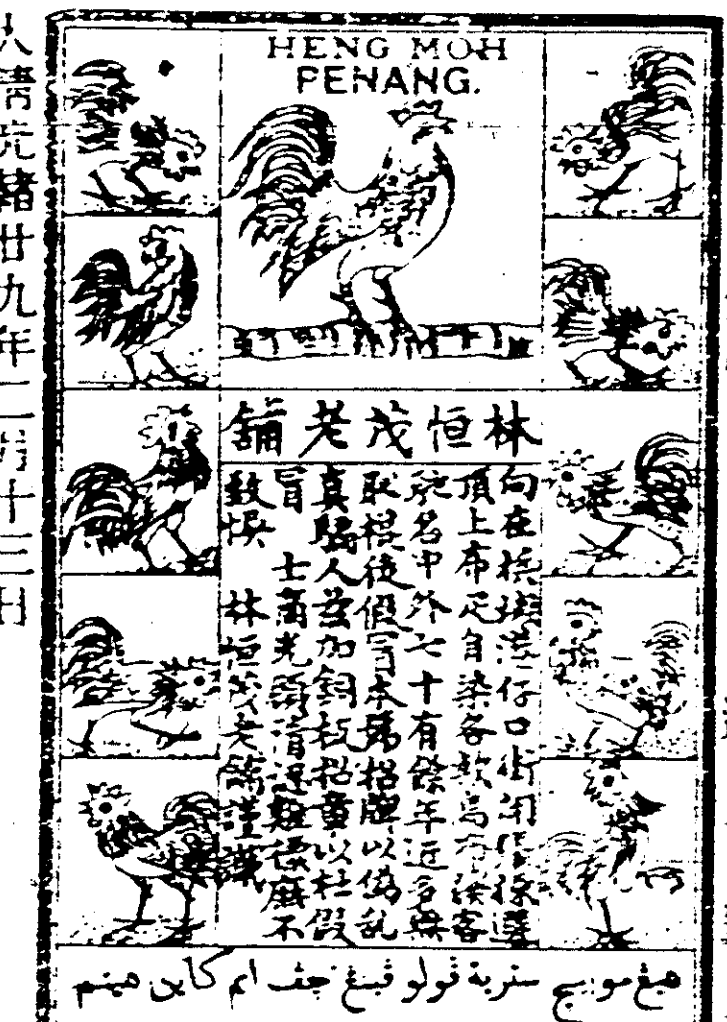 大清光緒廿九年二月十三日
HENG MOH
PENANG.
林恒茂老舖
向在檳城港仔口街開張採選
頂上布疋自染各款烏客
馳名中外七十有餘年近多無
恥棍徒假冒本號招牌以偽亂
真騙人茲加銅板招畫以杜假
冒 士商光顧請認雞像庶不
致悞 林恒茂老舖謹識
هيڠ مو بيچ سترية ڤولو ڤينڠ چڤ ايم كاين هيتم